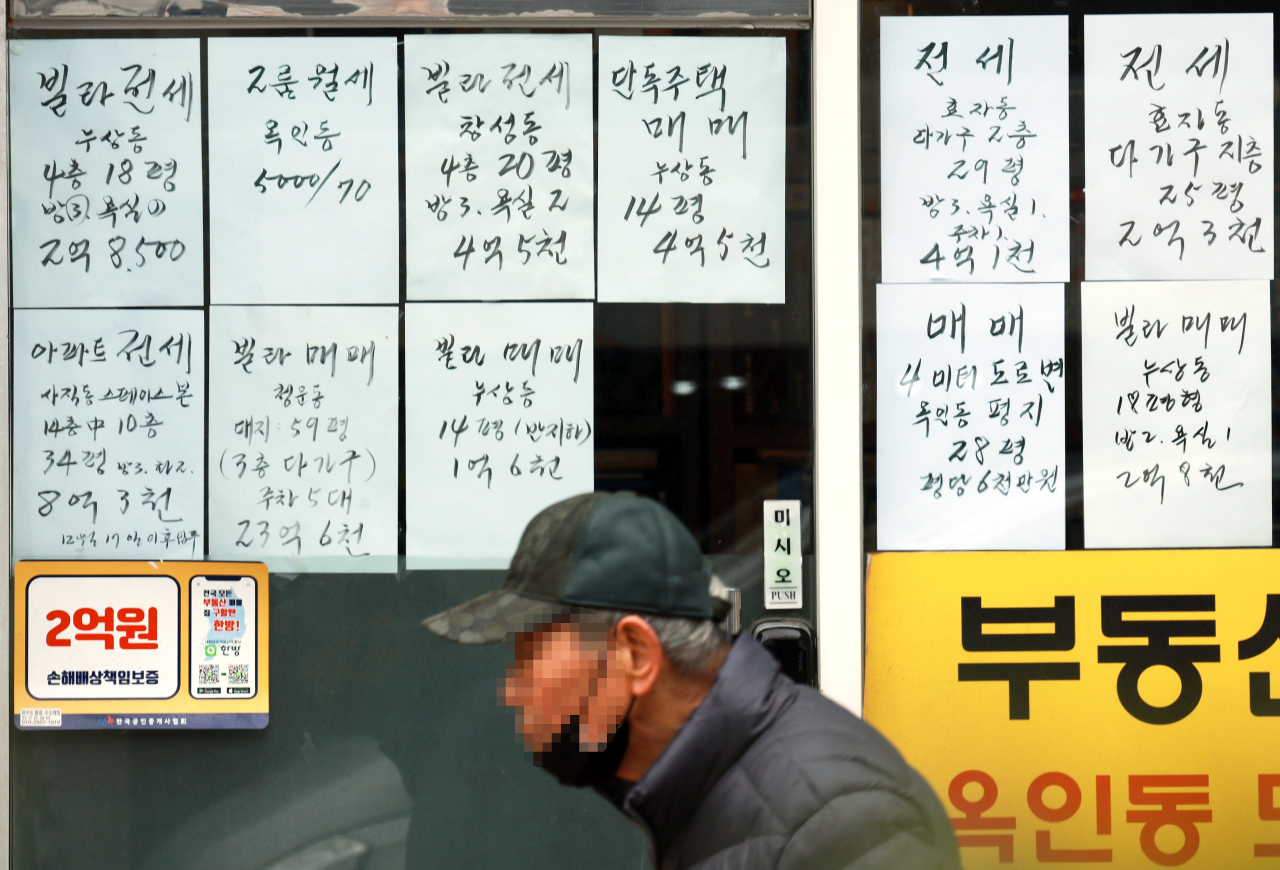 빌라 전세
누상동
4층 18평
방③. 욕실①
2억 8,500
2룸 월세
옥인동
5000/70
빌라 전세
창성동
4층 20평
방3. 욕실2
4억 5천
단독주택
매매
누상동
14평
4억 5천
전세
효자동
다가구 2층
29평
방3. 욕실1.
주차1.
4억 1천
전세
효자동
다가구 지층
25평
2억 3천
아파트 전세
사직동 스페이스본
14층中 10층
34평 방3. 화2.
8억 3천
12월 17일 이후 입주
빌라 매매
청운동
대지: 59평
(3층 다가구)
주차 5대
23억 6천
빌라 매매
누상동
14평 (반지하)
1억 6천
매매
4미터 도로변
옥인동 평지
28평
평당 6천만원
빌라 매매
누상동
평형
방2. 욕실1
2억 8천
미시오
PUSH
2억원
손해배상책임보증
전국 모든
부동산 매물
집 구할땐
한방!
한방
한국공인중개사협회
부동산
옥인동